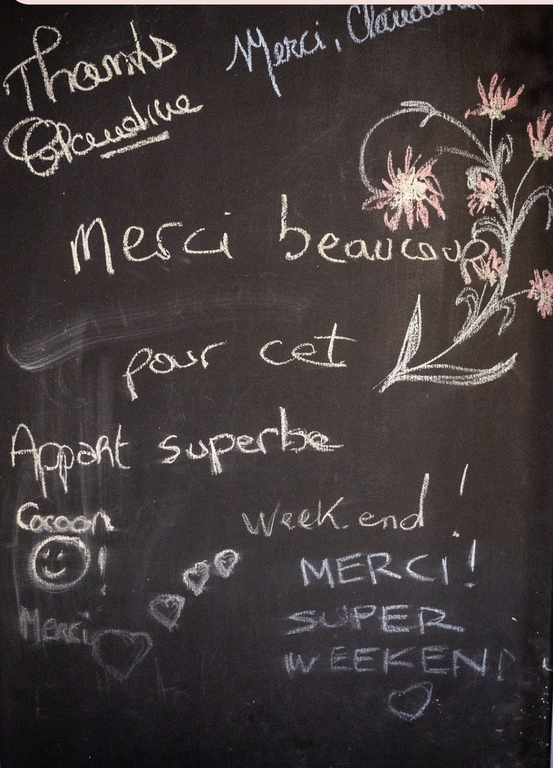 Thanks
Claudine
Merci, Claudine
Merci beaucoup
pour cet
Appart superbe
Cocoon
!
week.end !
Merci
MERCI !
SUPER
WEEKEND